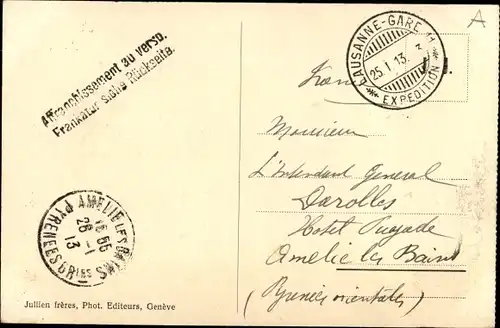 Affranchissement au verso.
Frankatur siehe Rückseite.
LAUSANNE-GARE
25.I.13. 3
EXPEDITION
A
France
Monsieur
L'Intendant General
Darolles
Hotel Pujade
Amelie les Bains
(Pyrenées orientales)
AMELIE LES BAINS
16 55
26 -1
13
PYRENEES ORles
Jullien frères, Phot. Editeurs, Genève